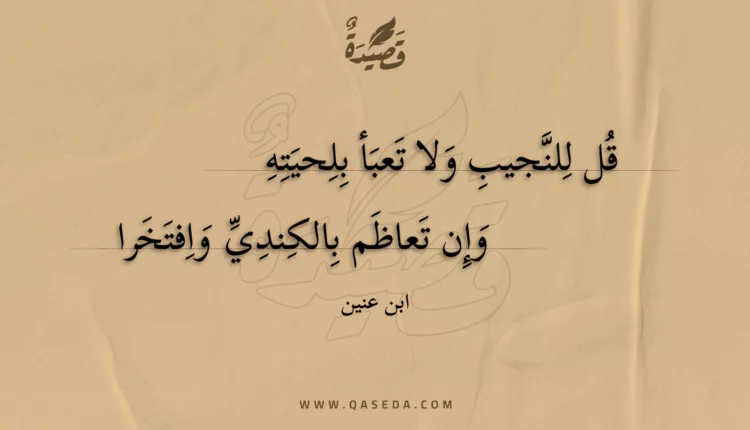 قَصِيدَةٌ
قُل لِلنَّجيبِ وَلا تَعبَأ بِلِحيَتِهِ
وَإِن تَعاظَم بِالكِندِيِّ وَاِفتَخَرا
ابن عنين
WWW.QASEDA.COM